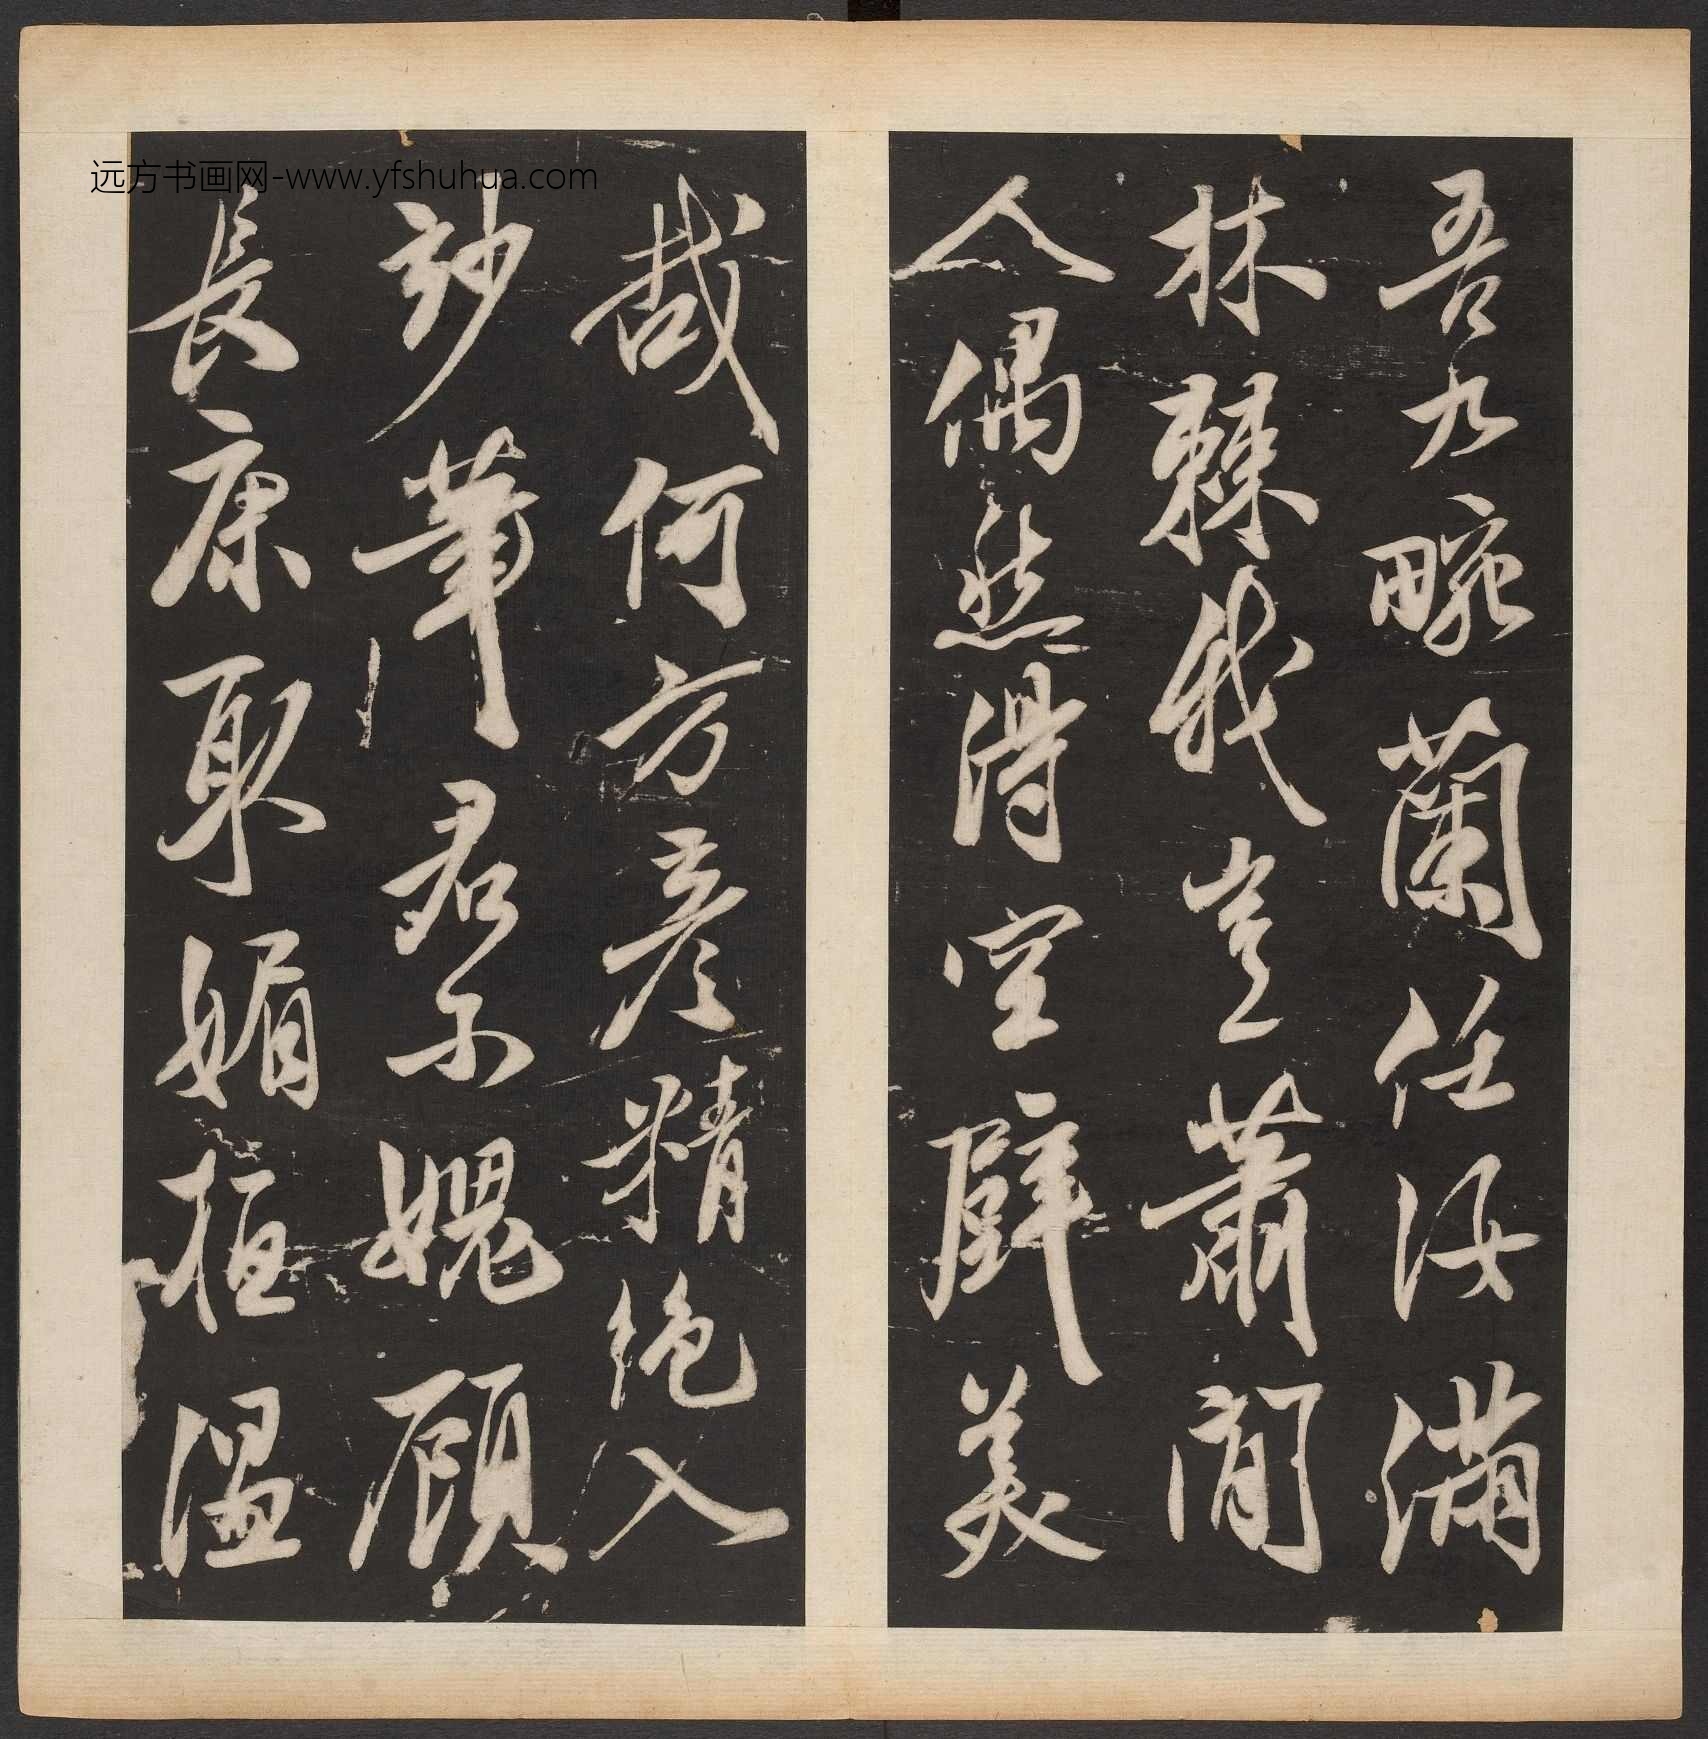 远方书画网-www.yfshuhua.com
吾九畹蘭任汝滿
林棘我豈蕭閒
人偶然得空壁美
哉何方彥精絕入
妙筆君不媿顧
長康取媚桓溫